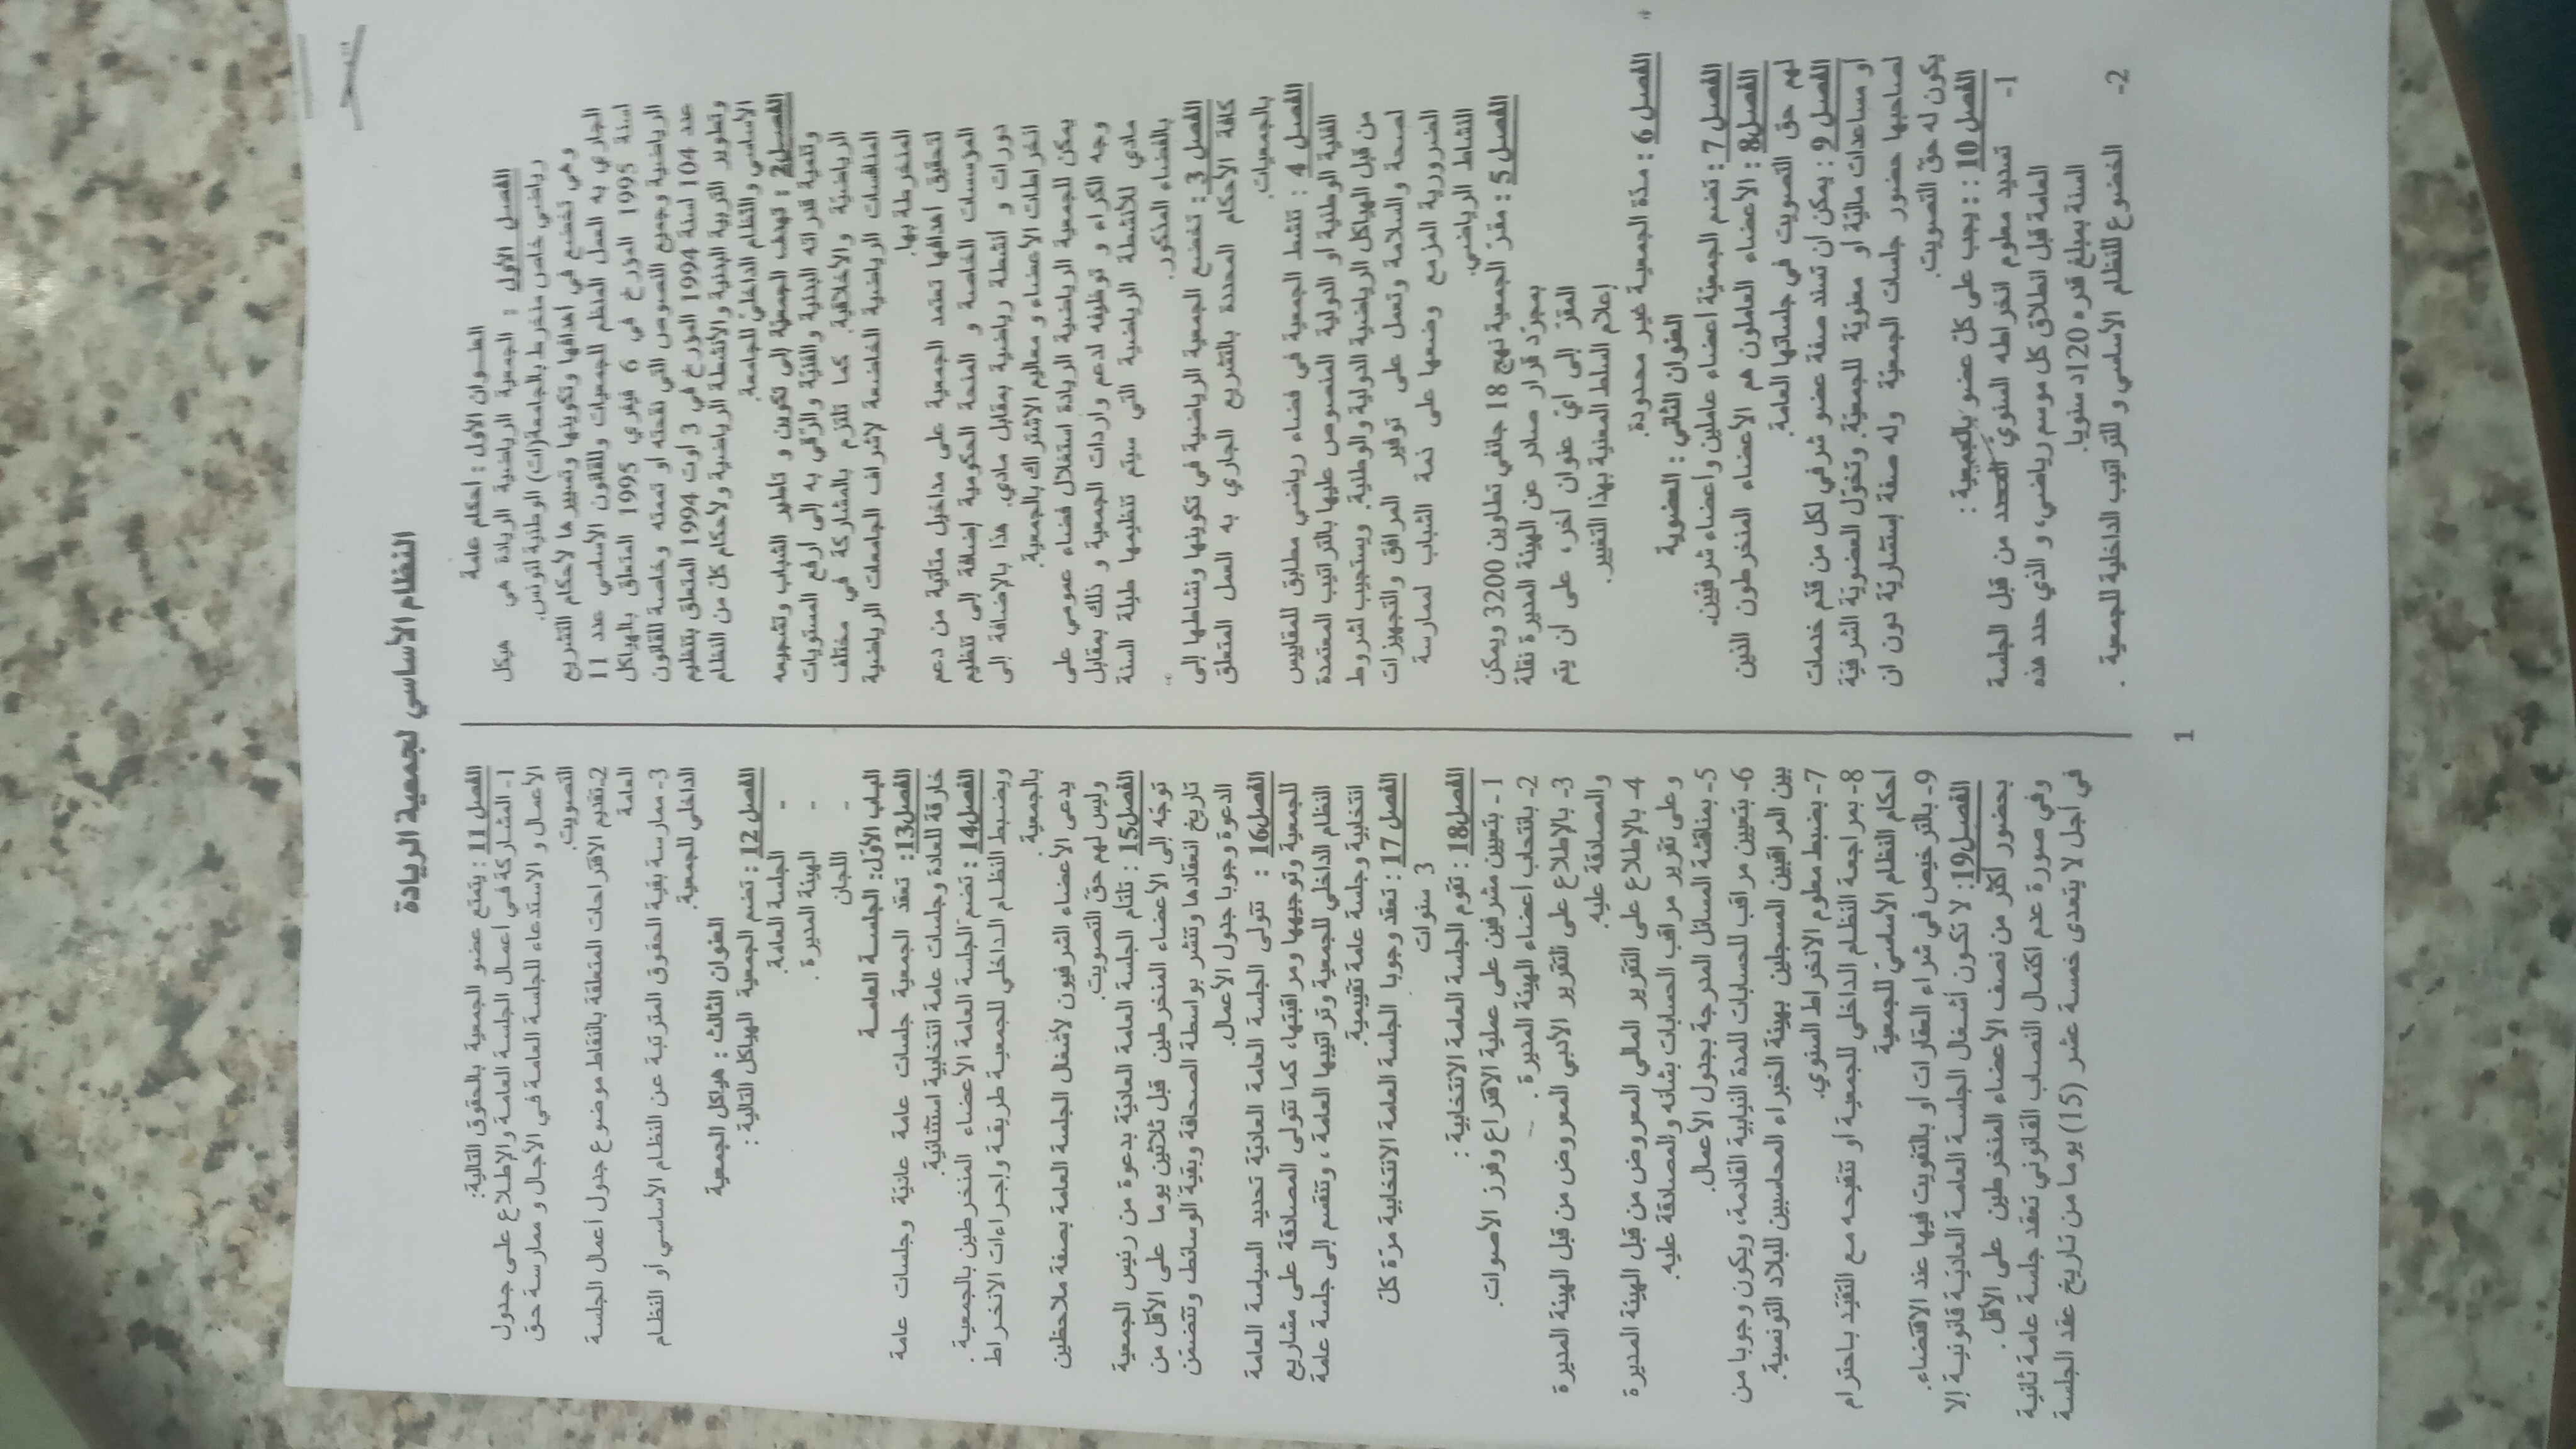 النظام الأساسي لجمعية الريادة
العنــوان الأول : أحكام عامة
الفصل الأول : الجمعية الرياضية الريادة هي هيكل
رياضي خاص منخرط بالجامعة(ات) الوطنية لتونس.
وهي تخضع في أهدافها وتكوينها وتسييرها لأحكام التشريع
الجاري به العمل المنظم للجمعيات وللقانون الأساسي عدد 11
لسنة 1995 المؤرخ في 6 فيفري 1995 المتعلق بالهياكل
الرياضية وجميع النصوص التي نقحته أو تممته وخاصة للقانون
عدد 104 لسنة 1994 المؤرخ في 3 أوت 1994 المتعلق بتنظيم
وتطوير التربية البدنية والأنشطة الرياضية ولأحكام كلّ من النظام
الأساسي والنظام الداخليّ للجامعة.
الفصل2 : تهدف الجمعيّة إلى تكوين و تأطير الشباب وتشجيعه
وتنمية قدراته البدنية والفنيّة والرّقي به إلى أرفع المستويات
الرياضيّة والأخلاقية. كما تلتزم بالمشاركة في مختلف
المنافسات الرياضية الخاضعة لإشراف الجامعات الرياضية
المنخرطة بها.
لتحقيق أهدافها تعتمد الجمعية على مداخيل متأتية من دعم
المؤسسات الخاصة و المنحة الحكومية إضافة إلى تنظيم
دورات و أنشطة رياضية بمقابل مادي. هذا بالإضافة إلى
انخراطات الأعضاء و معاليم الاشتراك بالجمعية.
يمكن للجمعية الرياضية الريادة استغلال فضاء عمومي على
وجه الكراء و توظيفه لدعم واردات الجمعية و ذلك بمقابل
مادي للأنشطة الرياضية التي سيتم تنظيمها طيلة السنة
بالفضاء المذكور.
الفصل 3 : تخضع الجمعية الرياضية في تكوينها ونشاطها إلى
كافة الأحكام المحددة بالتشريع الجاري به العمل المتعلق
بالجمعيات.
الفصل 4 : تنشط الجمعية في فضاء رياضي مطابق للمقاييس
الفنية الوطنية أو الدولية المنصوص عليها بالتراتيب المعتمدة
من قبل الهياكل الرياضية الدولية والوطنية. ويستجيب لشروط
لصحة والسلامة وتعمل على توفير المرافق والتجهيزات
الضرورية المزمع وضعها على ذمة الشباب لممارسة
النشاط الرياضي.
الفصل 5 : مقرّ الجمعية نهج 18 جانفي تطاوين 3200 ويمكن
بمجرّد قرار صادر عن الهيئة المديرة نقلة
المقرّ إلى أيّ عنوان آخر، على أن يتم
إعلام السلط المعنية بهذا التغيير.
الفصل 6 : مدّة الجمعية غير محدودة.
العنوان الثاني : العضوية
الفصل 7 : تضم الجمعيّة أعضاء عاملين وأعضاء شرفيين.
الفصل8 : الأعضاء العاملون هم الأعضاء المنخرطون الذين
لهم حق التصويت في جلساتها العامة.
الفصل 9 : يمكن أن تسند صفة عضو شرفي لكل من قدّم خدمات
أو مساعدات ماليّة أو معنويّة للجمعيّة. وتخوّل العضوية الشرفية
لصاحبها حضور جلسات الجمعيّة وله صفة إستشاريّة دون أن
يكون له حقّ التصويت.
الفصل 10 : : يجب على كلّ عضو بالجمعية :
1- تسديد معلوم انخراطه السنوي المحدد من قبل الجلسة
العامة قبل انطلاق كل موسم رياضي، و الذي حدد هذه
السنة بمبلغ قدره 120د سنويا.
2- الخضوع للنظام الأساسي و للتراتيب الداخلية للجمعية .
الفصل 11 : يتمتع عضو الجمعية بالحقوق التالية:
1- المشاركة في أعمال الجلسة العامة والإطلاع على جدول
الأعمال و الاستدعاء للجلسة العامة في الآجال و ممارسة حق
التصويت.
2-تقديم الاقتراحات المتعلقة بالنقاط موضوع جدول أعمال الجلسة
العامة
3- ممارسة بقية الحقوق المترتبة عن النظام الأساسي أو النظام
الداخلي للجمعية.
العنوان الثالث : هياكل الجمعية
الفصل 12 : تضم الجمعية الهياكل التالية :
- الجلسة العامة.
- الهيئة المديرة .
- اللجان
الباب الأوّل: الجلســة العامــة
الفصل13: تعقد الجمعية جلسات عامة عاديّة وجلسات عامة
خارقة للعادة وجلسات عامة انتخابية استثنائية.
الفصل14 : تضم الجلسة العامة الأعضاء المنخرطين بالجمعية .
ويضبط النظام الداخلي للجمعية طريقة وإجراءات الانخراط
بالجمعية.
يدعى الأعضاء الشرفيون لأشغال الجلسة العامة بصفة ملاحظين
وليس لهم حق التصويت.
الفصل15 : تلتأم الجلسة العامة العاديّة بدعوة من رئيس الجمعية
توجّه إلى الأعضاء المنخرطين قبل ثلاثين يوما على الأقل من
تاريخ انعقادها وتنشر بواسطة الصحافة وبقية الوسائط وتتضمّن
الدعوة وجوبا جدول الأعمال.
الفصل16 : تتولى الجلسة العامة العاديّة تحديد السياسة العامة
للجمعية وتوجيهها ومراقبتها، كما تتولى المصادقة على مشاريع
النظام الداخلي للجمعية وتراتيبها العامة ، وتنقسم إلى جلسة عامة
انتخابية وجلسة عامة تقييمية.
الفصل 17 : تعقد وجوبا الجلسة العامة الانتخابية مرّة كلّ
3 سنوات
الفصل18 : تقوم الجلسة العامة الانتخابية :
1 - بتعيين مشرفين على عملية الاقتراع وفرز الأصوات.
2- بانتخاب أعضاء الهيئة المديرة .
3- بالإطلاع على التقرير الأدبي المعروض من قبل الهيئة المديرة
والمصادقة عليه.
4- بالإطلاع على التقرير المالي المعروض من قبل الهيئة المديرة
وعلى تقرير مراقب الحسابات بشأنه والمصادقة عليه.
5- بمناقشة المسائل المدرجة بجدول الأعمال.
6- بتعيين مراقب للحسابات للمدة النيابية القادمة، ويكون وجوبا من
بين المراقبين المسجلين بهيئة الخبراء المحاسبين للبلاد التونسية.
7- بضبط معلوم الانخراط السنوي.
8- بمراجعة النظام الداخلي للجمعية أو تنقيحه مع التقيّد باحترام
أحكام النظام الأساسيّ للجمعية
9- بالترخيص في شراء العقارات أو بالتفويت فيها عند الاقتضاء.
الفصل19: لا تكون أشغال الجلسة العامة العاديّة قانونيـة إلا
بحضور أكثر من نصف الأعضاء المنخرطين على الأقل .
وفي صورة عدم اكتمال النصاب القانوني تعقد جلسة عامة ثانية
في أجل لا يتعدى خمسة عشر (15) يوما من تاريخ عقد الجلسة
1